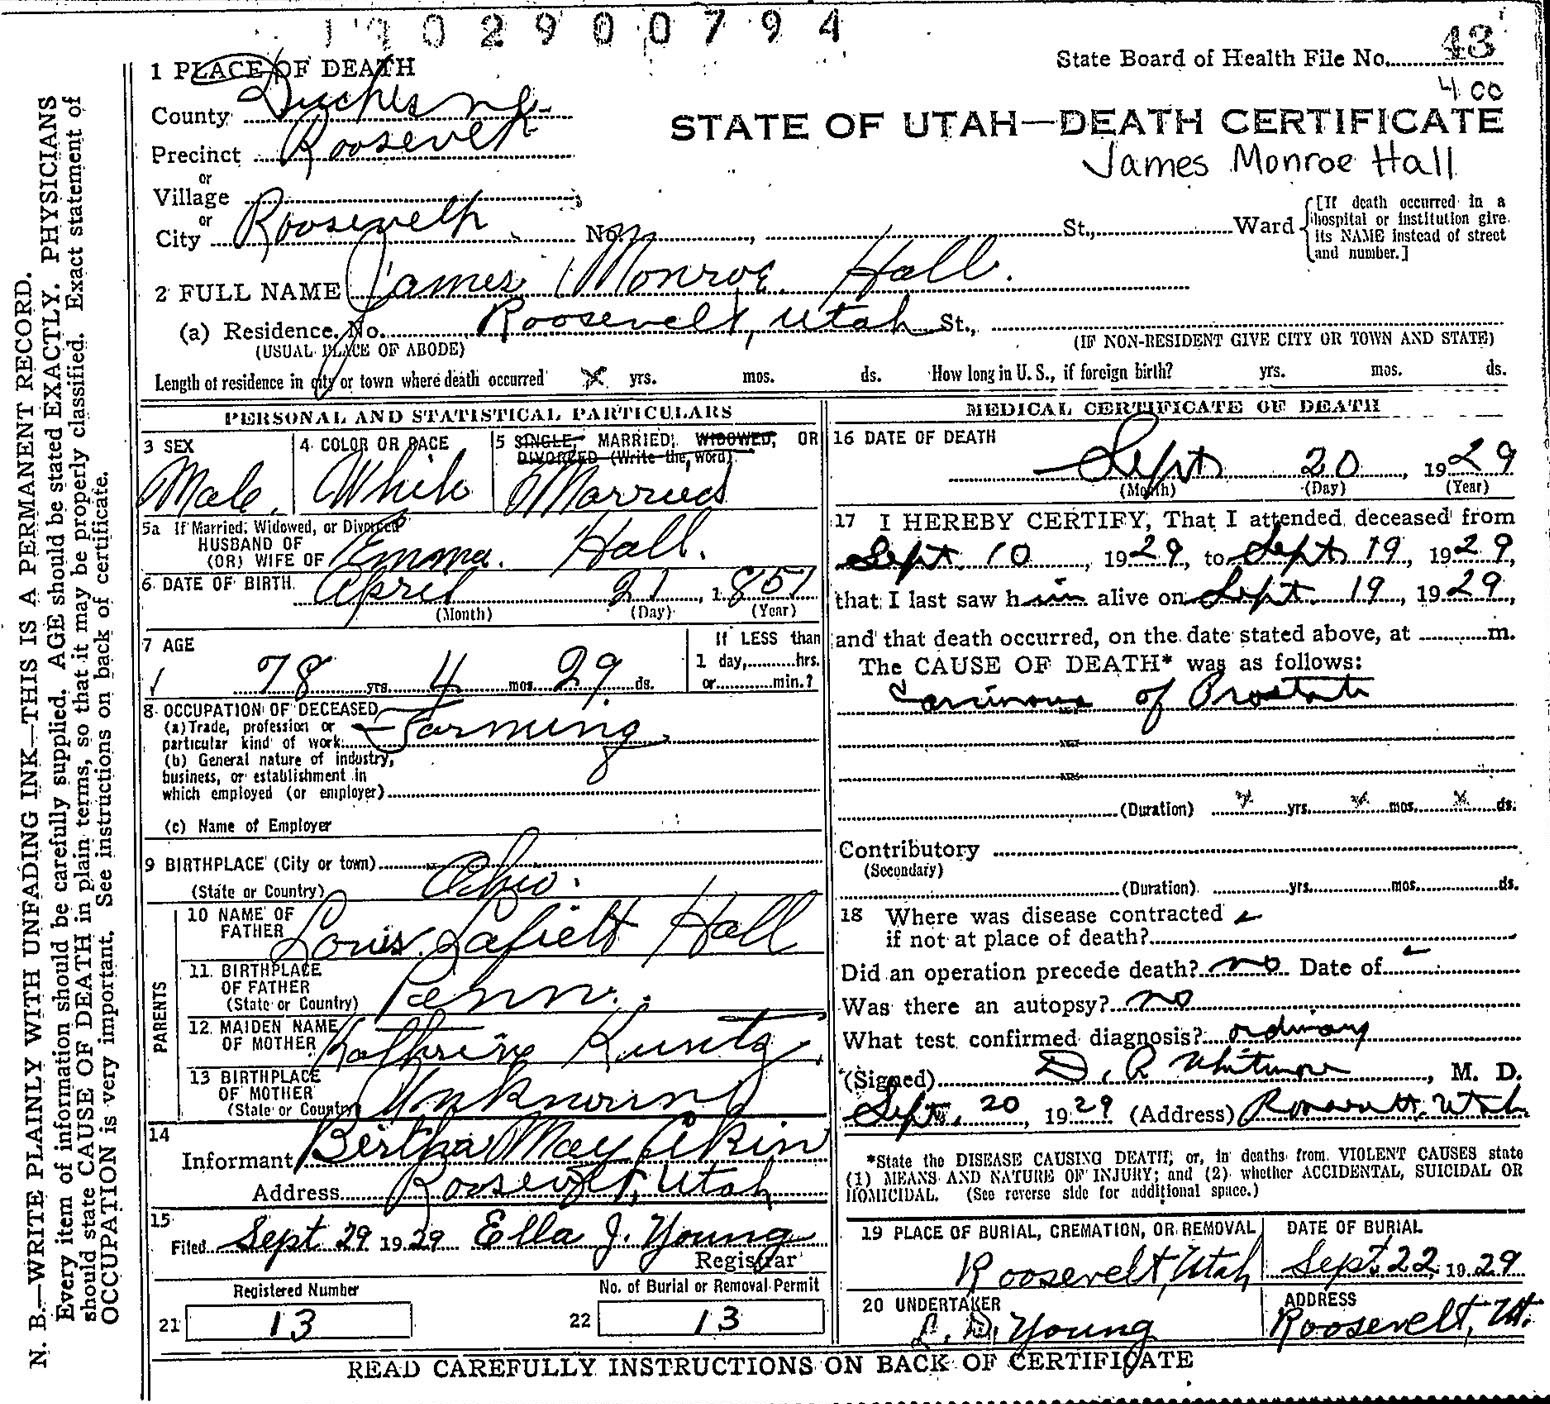 1902900794
State Board of Health File No. 43
400
1 PLACE OF DEATH
County Duchesne
STATE OF UTAH—DEATH CERTIFICATE
Precinct Roosevelt
James Monroe Hall
or
Village
or
City Roosevelt No. St., Ward
[If death occurred in a hospital or institution give its NAME instead of street and number.]
2 FULL NAME James Monroe Hall.
(a) Residence. No. Roosevelt, Utah St.,
(USUAL PLACE OF ABODE) (IF NON-RESIDENT GIVE CITY OR TOWN AND STATE)
Length of residence in city or town where death occurred x yrs. mos. ds. How long in U. S., if foreign birth? yrs. mos. ds.
PERSONAL AND STATISTICAL PARTICULARS
3 SEX
Male.
4 COLOR OR RACE
White
5 SINGLE, MARRIED, WIDOWED, OR
DIVORCED (Write the word)
Married
5a If Married, Widowed, or Divorced
HUSBAND OF
(OR) WIFE OF Emma. Hall.
6 DATE OF BIRTH April 21, 1851
(Month) (Day) (Year)
7 AGE
78 yrs. 4 mos. 29 ds.
If LESS than
1 day, hrs.
or min.?
8 OCCUPATION OF DECEASED
(a) Trade, profession or
particular kind of work Farming
(b) General nature of industry,
business, or establishment in
which employed (or employer)
(c) Name of Employer
9 BIRTHPLACE (City or town)
(State or Country) Ohio.
PARENTS
10 NAME OF
FATHER Louis Lafielt Hall
11 BIRTHPLACE
OF FATHER
(State or Country) Penn.
12 MAIDEN NAME
OF MOTHER Kathrine Kuntz
13 BIRTHPLACE
OF MOTHER
(State or Country) Unknown
14
Informant Bertha May Akin
Address Roosevelt, Utah
15
Filed Sept 29 1929 Ella J. Young
Registrar
Registered Number
21 13
No. of Burial or Removal Permit
22 13
MEDICAL CERTIFICATE OF DEATH
16 DATE OF DEATH
Sept 20, 1929
(Month) (Day) (Year)
17 I HEREBY CERTIFY, That I attended deceased from
Sept. 10, 1929, to Sept 19, 1929,
that I last saw him alive on Sept. 19, 1929,
and that death occurred, on the date stated above, at m.
The CAUSE OF DEATH* was as follows:
Carcinoma of Prostate
(Duration) x yrs. x mos. x ds.
Contributory
(Secondary)
(Duration) yrs. mos. ds.
18 Where was disease contracted
if not at place of death?
Did an operation precede death? no Date of
Was there an autopsy? no
What test confirmed diagnosis? ordinary
(Signed) D. R Whitmore, M. D.
Sept. 20 1929 (Address) Roosevelt, Utah
*State the DISEASE CAUSING DEATH, or, in deaths from VIOLENT CAUSES state
(1) MEANS AND NATURE OF INJURY; and (2) whether ACCIDENTAL, SUICIDAL OR
HOMICIDAL. (See reverse side for additional space.)
19 PLACE OF BURIAL, CREMATION, OR REMOVAL
Roosevelt, Utah
DATE OF BURIAL
Sept. 22, 1929
20 UNDERTAKER
L. D. Young
ADDRESS
Roosevelt, Ut.
READ CAREFULLY INSTRUCTIONS ON BACK OF CERTIFICATE
N. B.—WRITE PLAINLY WITH UNFADING INK—THIS IS A PERMANENT RECORD.
Every item of information should be carefully supplied. AGE should be stated EXACTLY. PHYSICIANS
should state CAUSE OF DEATH in plain terms, so that it may be properly classified. Exact statement of
OCCUPATION is very important. See instructions on back of certificate.